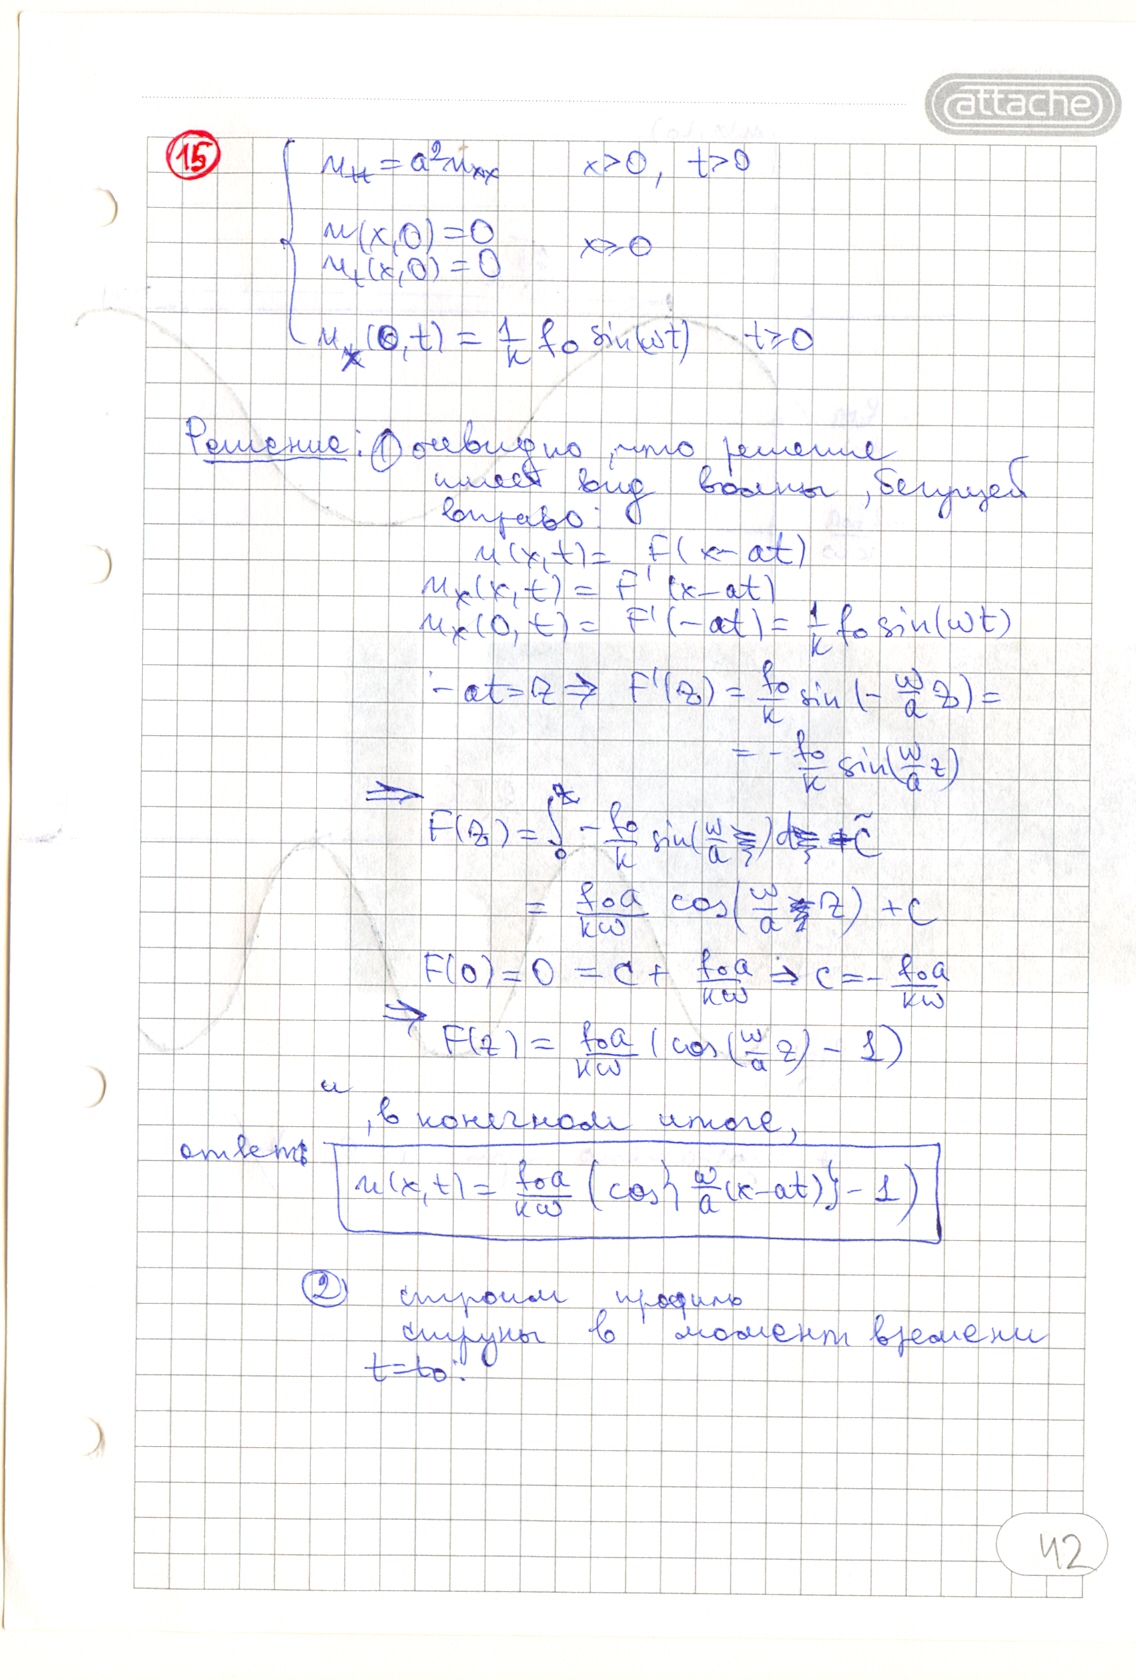 attache
15
u_tt = a²u_xx x>0, t>0
u(x,0)=0
x⩾0
u_t(x,0)=0
u_x(0,t) = 1/k f₀ sin(ωt) t⩾0
Решение: ① очевидно, что решение
имеет вид волны, бегущей
вправо:
u(x,t) = F(x-at)
u_x(x,t) = F'(x-at)
u_x(0,t) = F'(-at) = 1/k f₀ sin(ωt)
-at=z ⇒ F'(z) = f₀/k sin(-ω/a z) =
= -f₀/k sin(ω/a z)
⇒
F(z) = ∫₀^z -f₀/k sin(ω/a ξ)dξ + C̃
= f₀a/kω cos(ω/a z) + C
F(0) = 0 = C + f₀a/kω ⇒ C = -f₀a/kω
⇒
F(z) = f₀a/kω (cos(ω/a z) - 1)
и
, в конечном итоге,
ответ:
u(x,t) = f₀a/kω (cos{ω/a (x-at)} - 1)
② строим профиль
струны в момент времени
t=t₀:
42